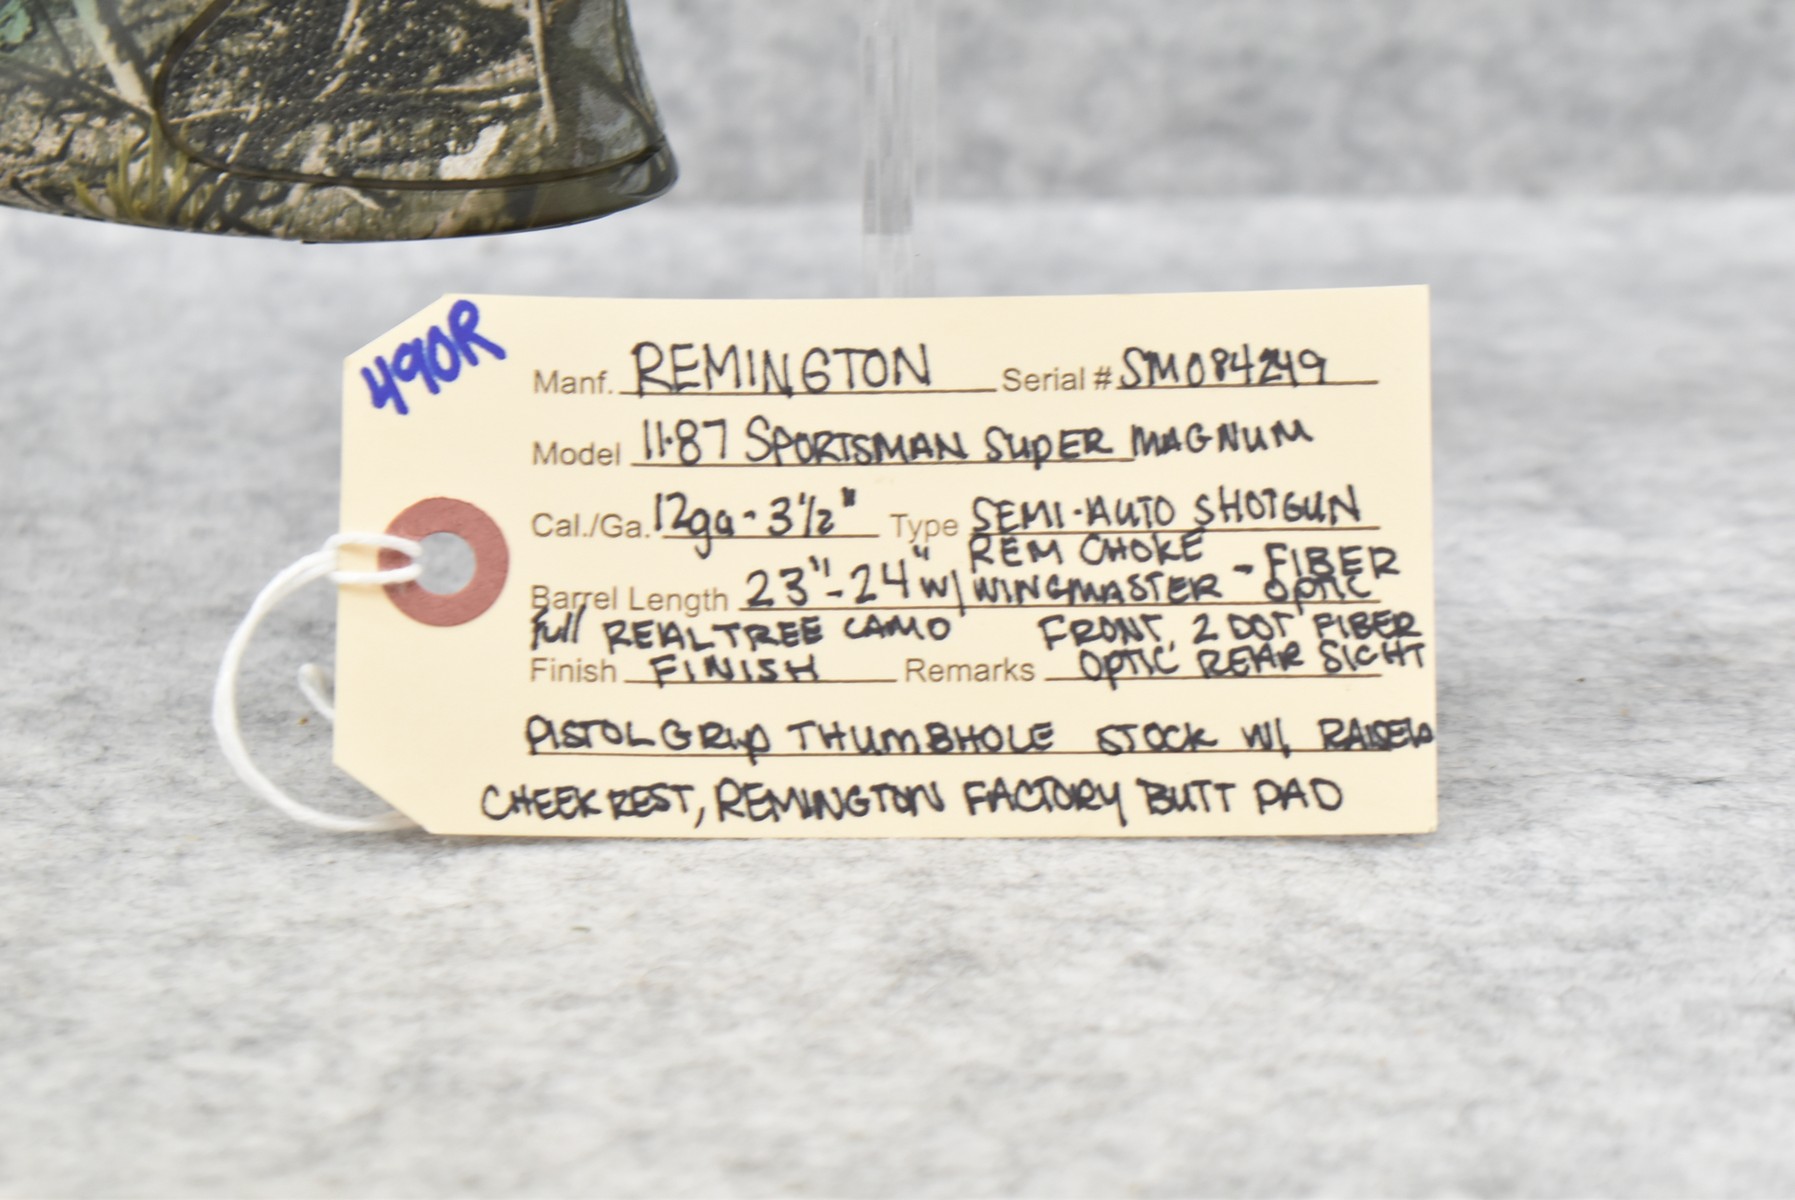 490R
Manf. REMINGTON Serial # SM084249
Model 11-87 SPORTSMAN SUPER MAGNUM
Cal./Ga. 12ga - 3 1/2" Type SEMI-AUTO SHOTGUN
REM CHOKE - FIBER
Barrel Length 23"-24" W/ WINGMASTER OPTIC
Full REALTREE CAMO FRONT, 2 DOT FIBER
Finish FINISH Remarks OPTIC REAR SIGHT
PISTOL GRIP THUMBHOLE STOCK W/ RAISED
CHEEK REST, REMINGTON FACTORY BUTT PAD